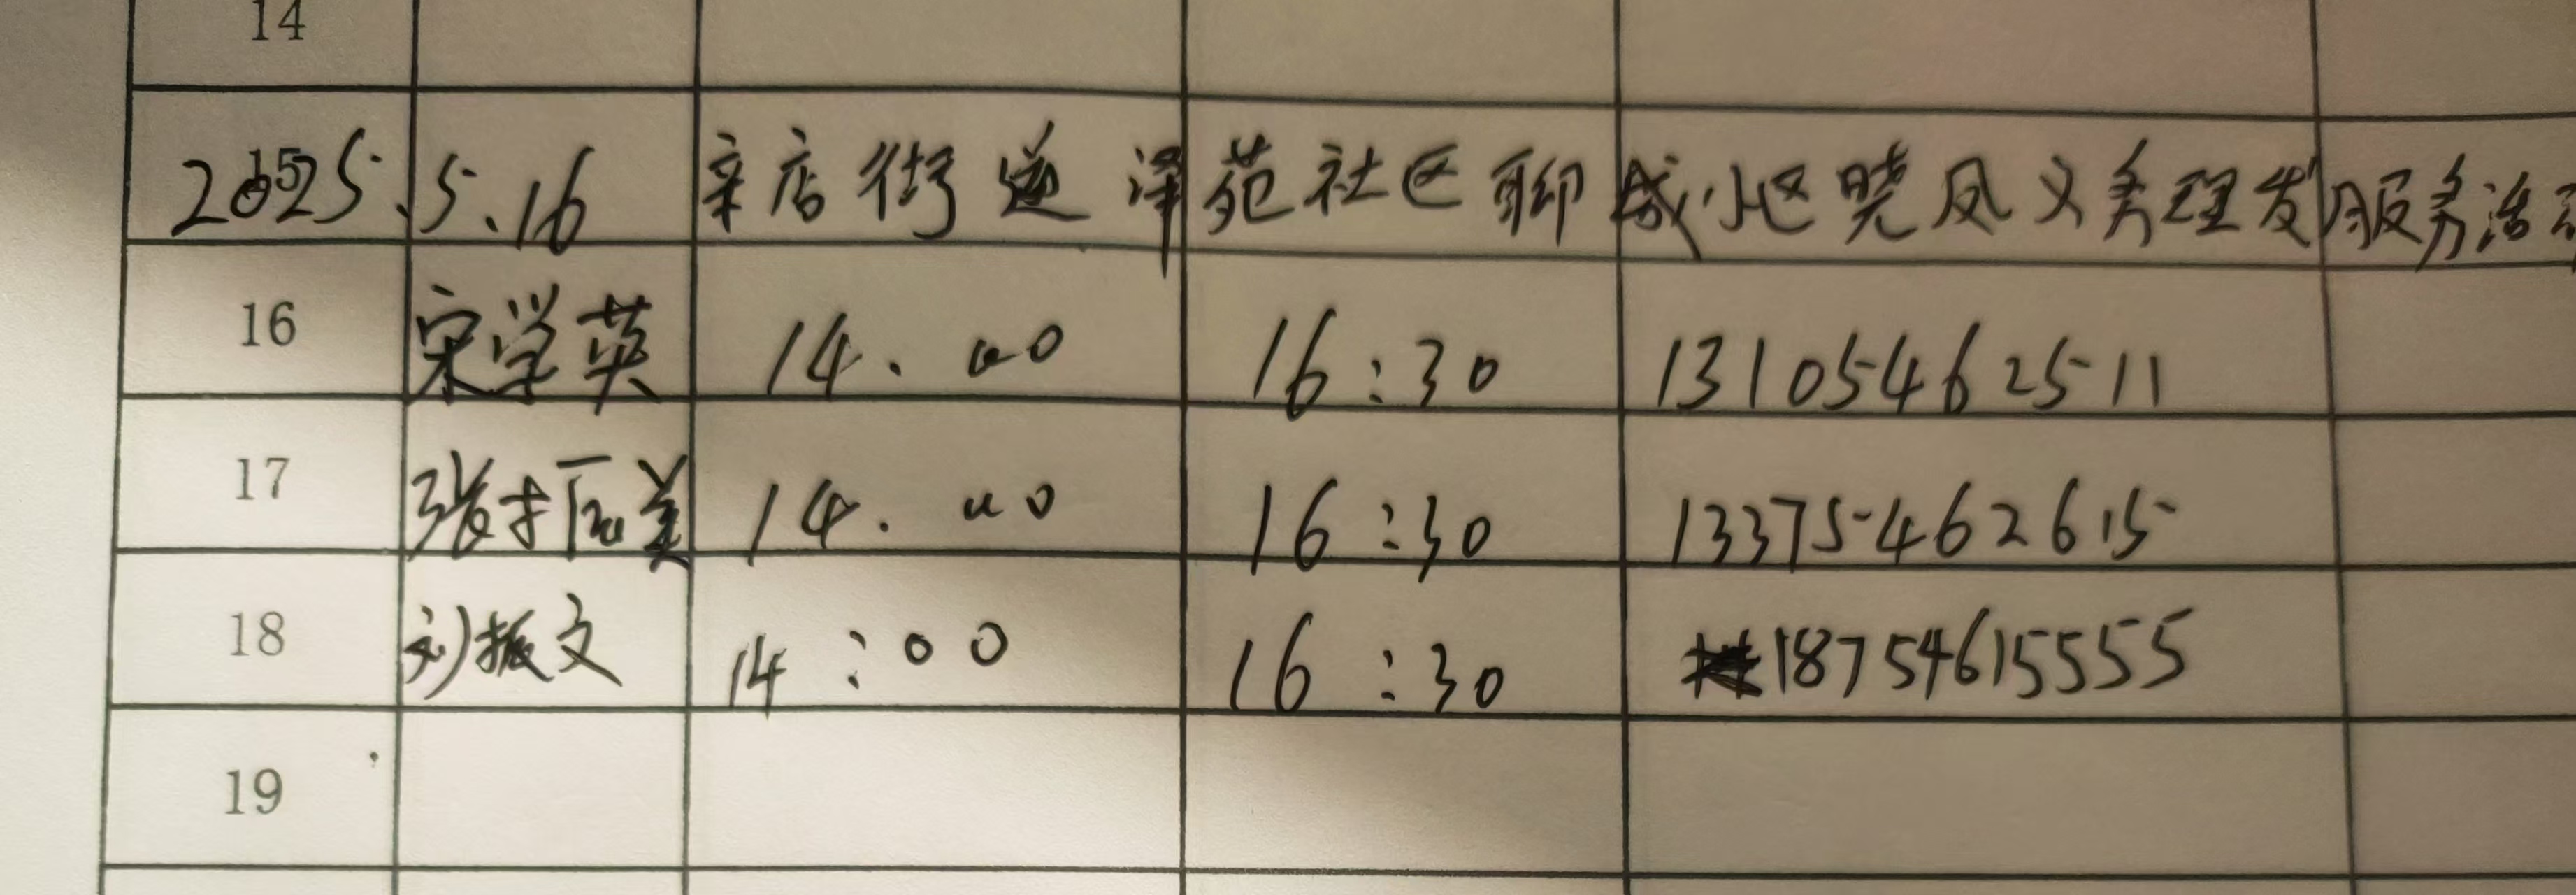 14
15 2025.5.16 辛店街道泽苑社区聊城小区晓凤义务理发服务活动
16 宋学英 14.00 16:30 13105462511
17 张振美 14.00 16:30 13375462615
18 刘振文 14:00 16:30 18754615555
19